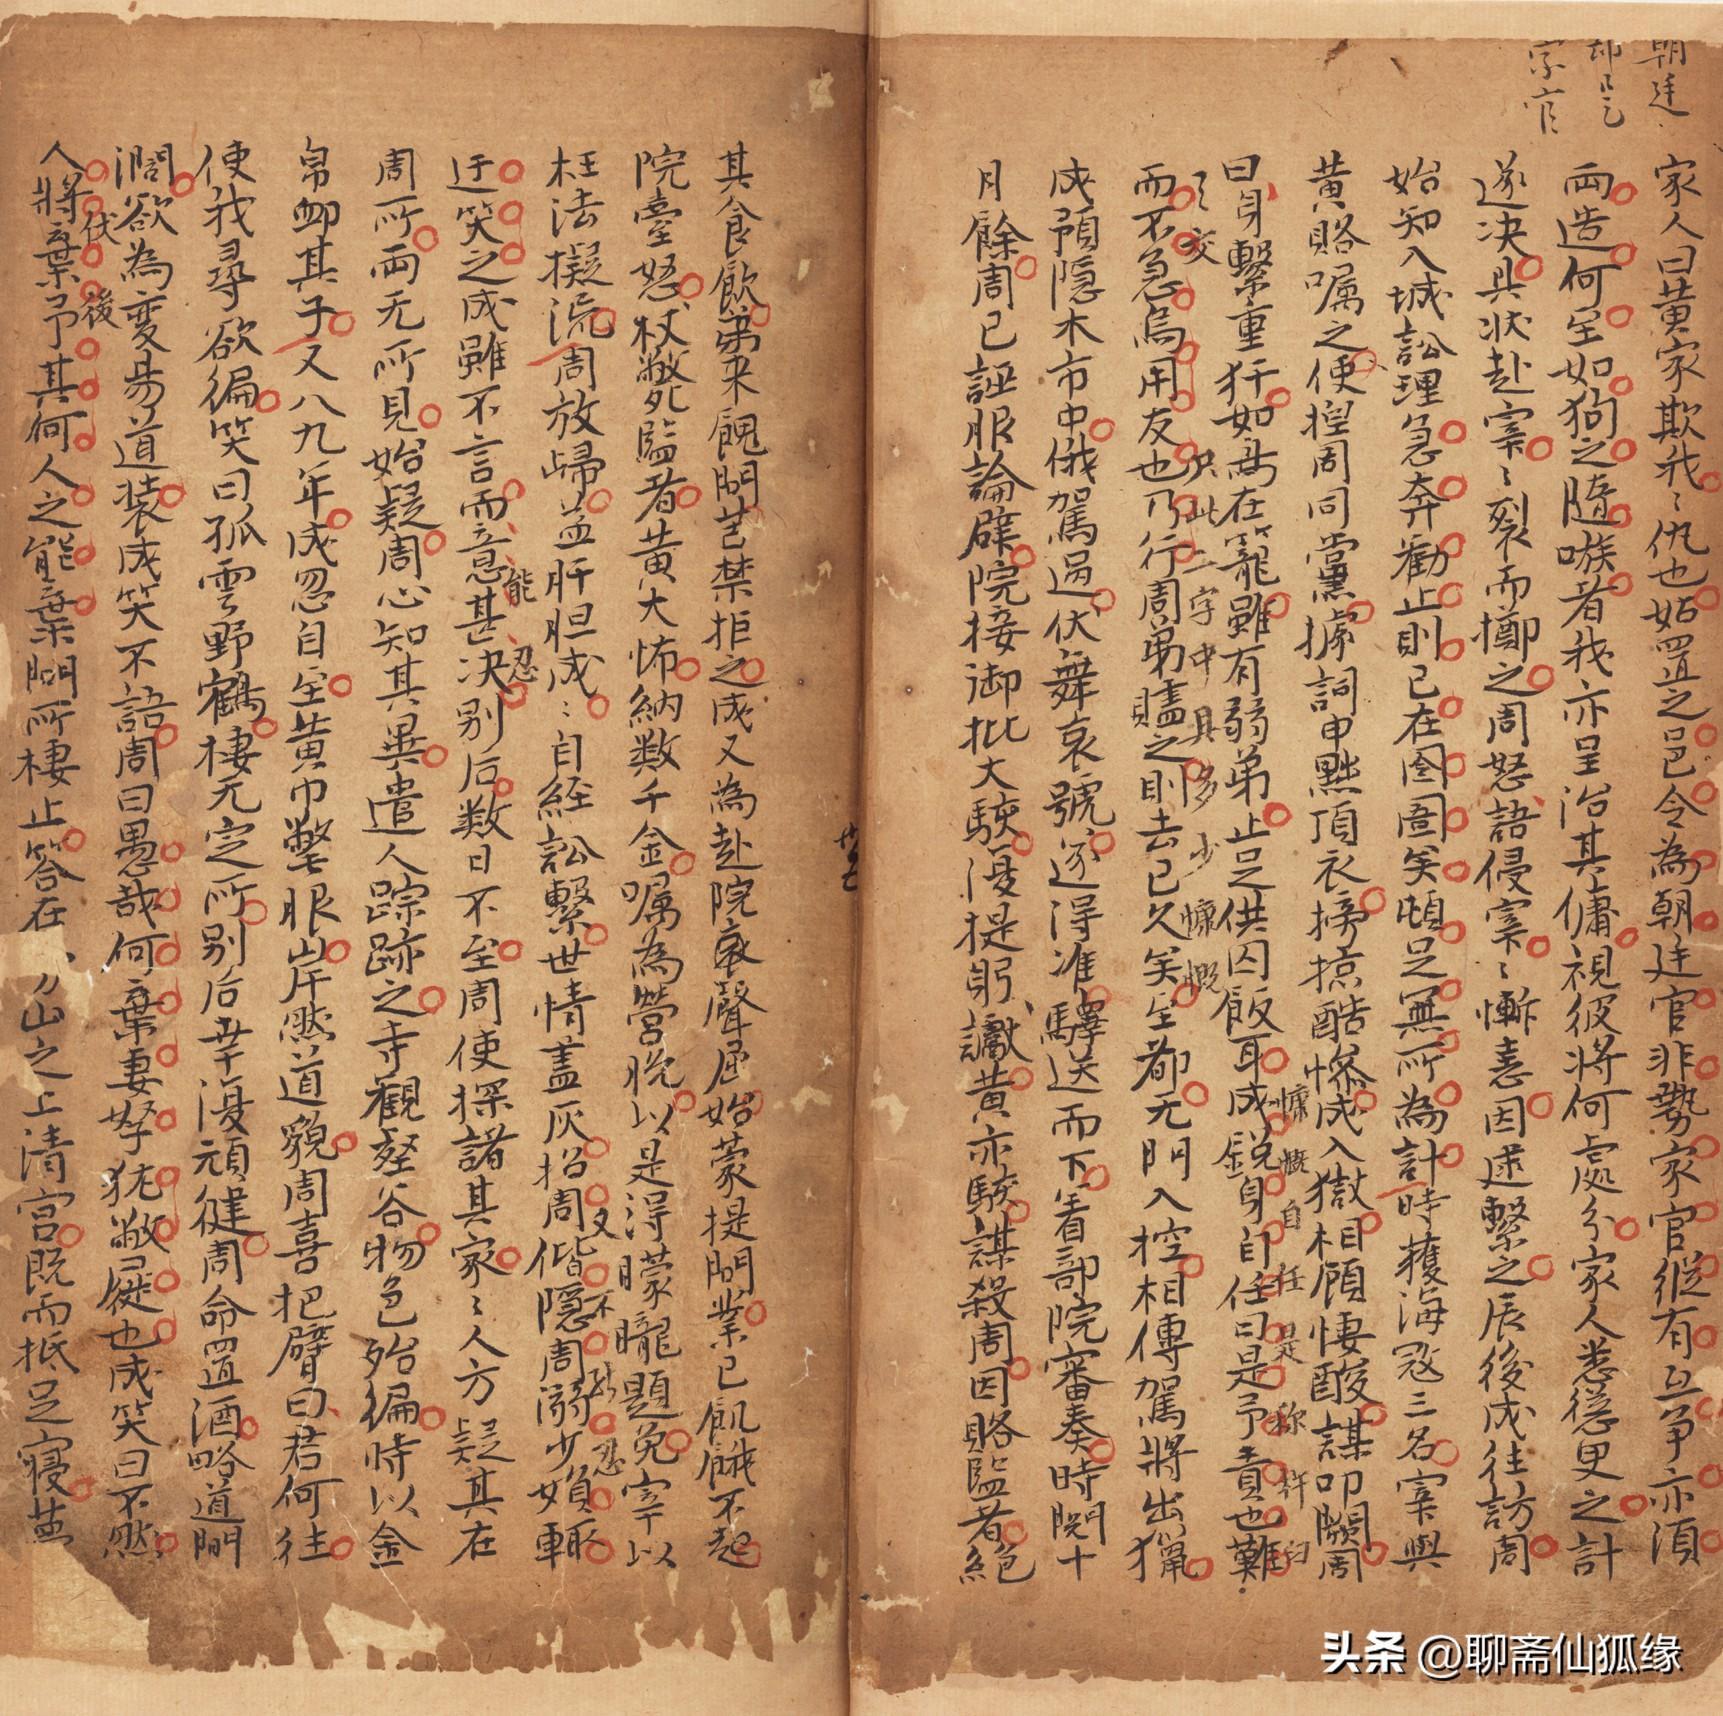 朝廷
却是
宗官
家人曰黄家欺我〻仇也姑置之邑令為朝廷官非勢家官縱有互爭亦須
兩造何至如狗之隨嗾者我亦呈治其傭視彼將何處分家人悉慫臾之計
遂决具狀赴宰〻裂而擲之周怒語侵宰〻慚恚因逮繫之辰後成往訪周
始知入城訟理急奔勸止則已在囹圄矣頓足無所為計時獲海寇三名宰與
黄賂嘱之使揑周同黨據詞申黜頂衣搒掠酷慘成入獄相顧悽酸謀叩闕周
曰身繫重犴如鳥在籠雖有弱弟止足供囚飯耳成銳身自任曰是予責也難
慷慨自任是
而不急烏用友也乃行周弟贐之則去已久矣至都无門入控相傳駕將出獵
交 只此二字中具多少慷慨
成預隐木市中俄駕過伏舞哀號遂得准驛送而下着部院審奏時閱十
月餘周已誣服論辟院接御批大駭復提躬讞黄亦駭謀殺周因賂監者絕
其食飲弟来餽問苦禁拒之成又為赴院聲屈始蒙提問業已飢餓不起
院臺怒杖斃監者黄大怖納数千金嘱為營脫以是得朦朧題免宰以
枉法擬流周放歸益肝胆成〻自經訟繫世情盖灰招周偕隱周溺少婦輒
又不能忍
迂笑之成雖不言而意甚决別后数日不至周使探諸其家〻人方疑其在
能忍
周所兩无所見始疑周心知其異遣人踪跡之寺觀壑谷物色殆徧時以金
帛卹其子又八九年成忽自至黄巾氅服岸然道貌周喜把臂曰君何往
使我尋欲徧笑曰孤雲野鶴棲无定所別后幸復頑健周命置酒略道間
濶欲為變易道裝成笑不語周曰愚哉何棄妻孥犹敝屣也成笑曰不然
伏後
人將棄予其何人之能棄問所棲止答在山之上清宫既而抵足寢
头条 @聊斋仙狐缘